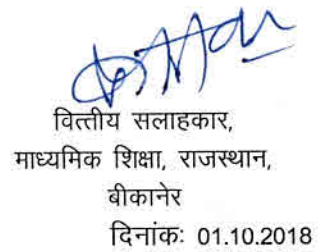 वित्तीय सलाहकार,
माध्यमिक शिक्षा, राजस्थान,
बीकानेर
दिनांकः 01.10.2018